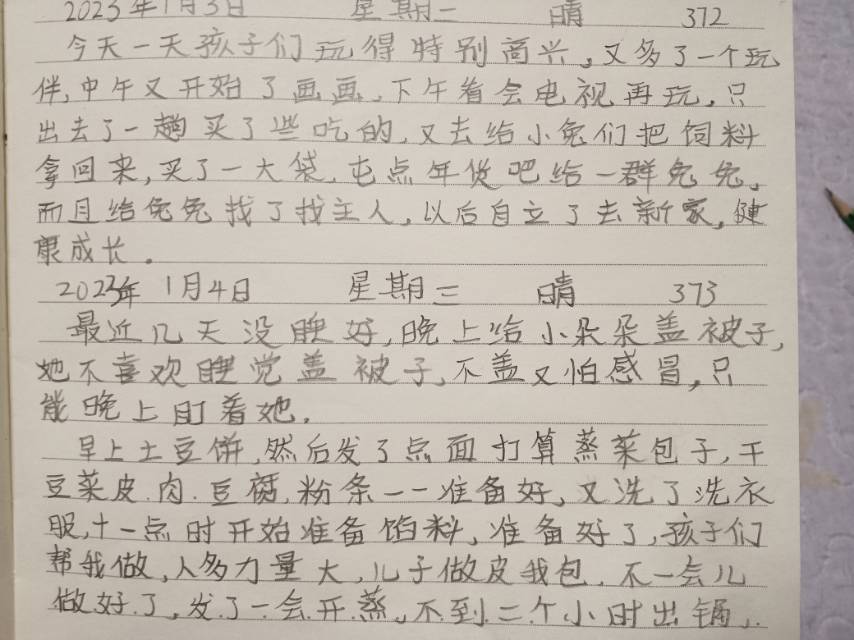 2023年1月3日 星期二 晴 372
今天一天孩子们玩得特别高兴,又多了一个玩
伴,中午又开始了画画,下午看会电视再玩,只
出去了一趟买了些吃的,又去给小兔们把饲料
拿回来,买了一大袋,屯点年货吧给一群兔兔,
而且给兔兔找了找主人,以后自立了去新家,健
康成长。
2023年1月4日 星期三 晴 373
最近几天没睡好,晚上给小朵朵盖被子,
她不喜欢睡觉盖被子,不盖又怕感冒,只
能晚上盯着她.
早上土豆饼,然后发了点面打算蒸菜包子,干
豆菜皮.肉.豆腐.粉条一一准备好,又洗了洗衣
服,十一点时开始准备馅料,准备好了,孩子们
帮我做,人多力量大,儿子做皮我包.不一会儿
做好了,发了一会开蒸,不到二个小时出锅,.